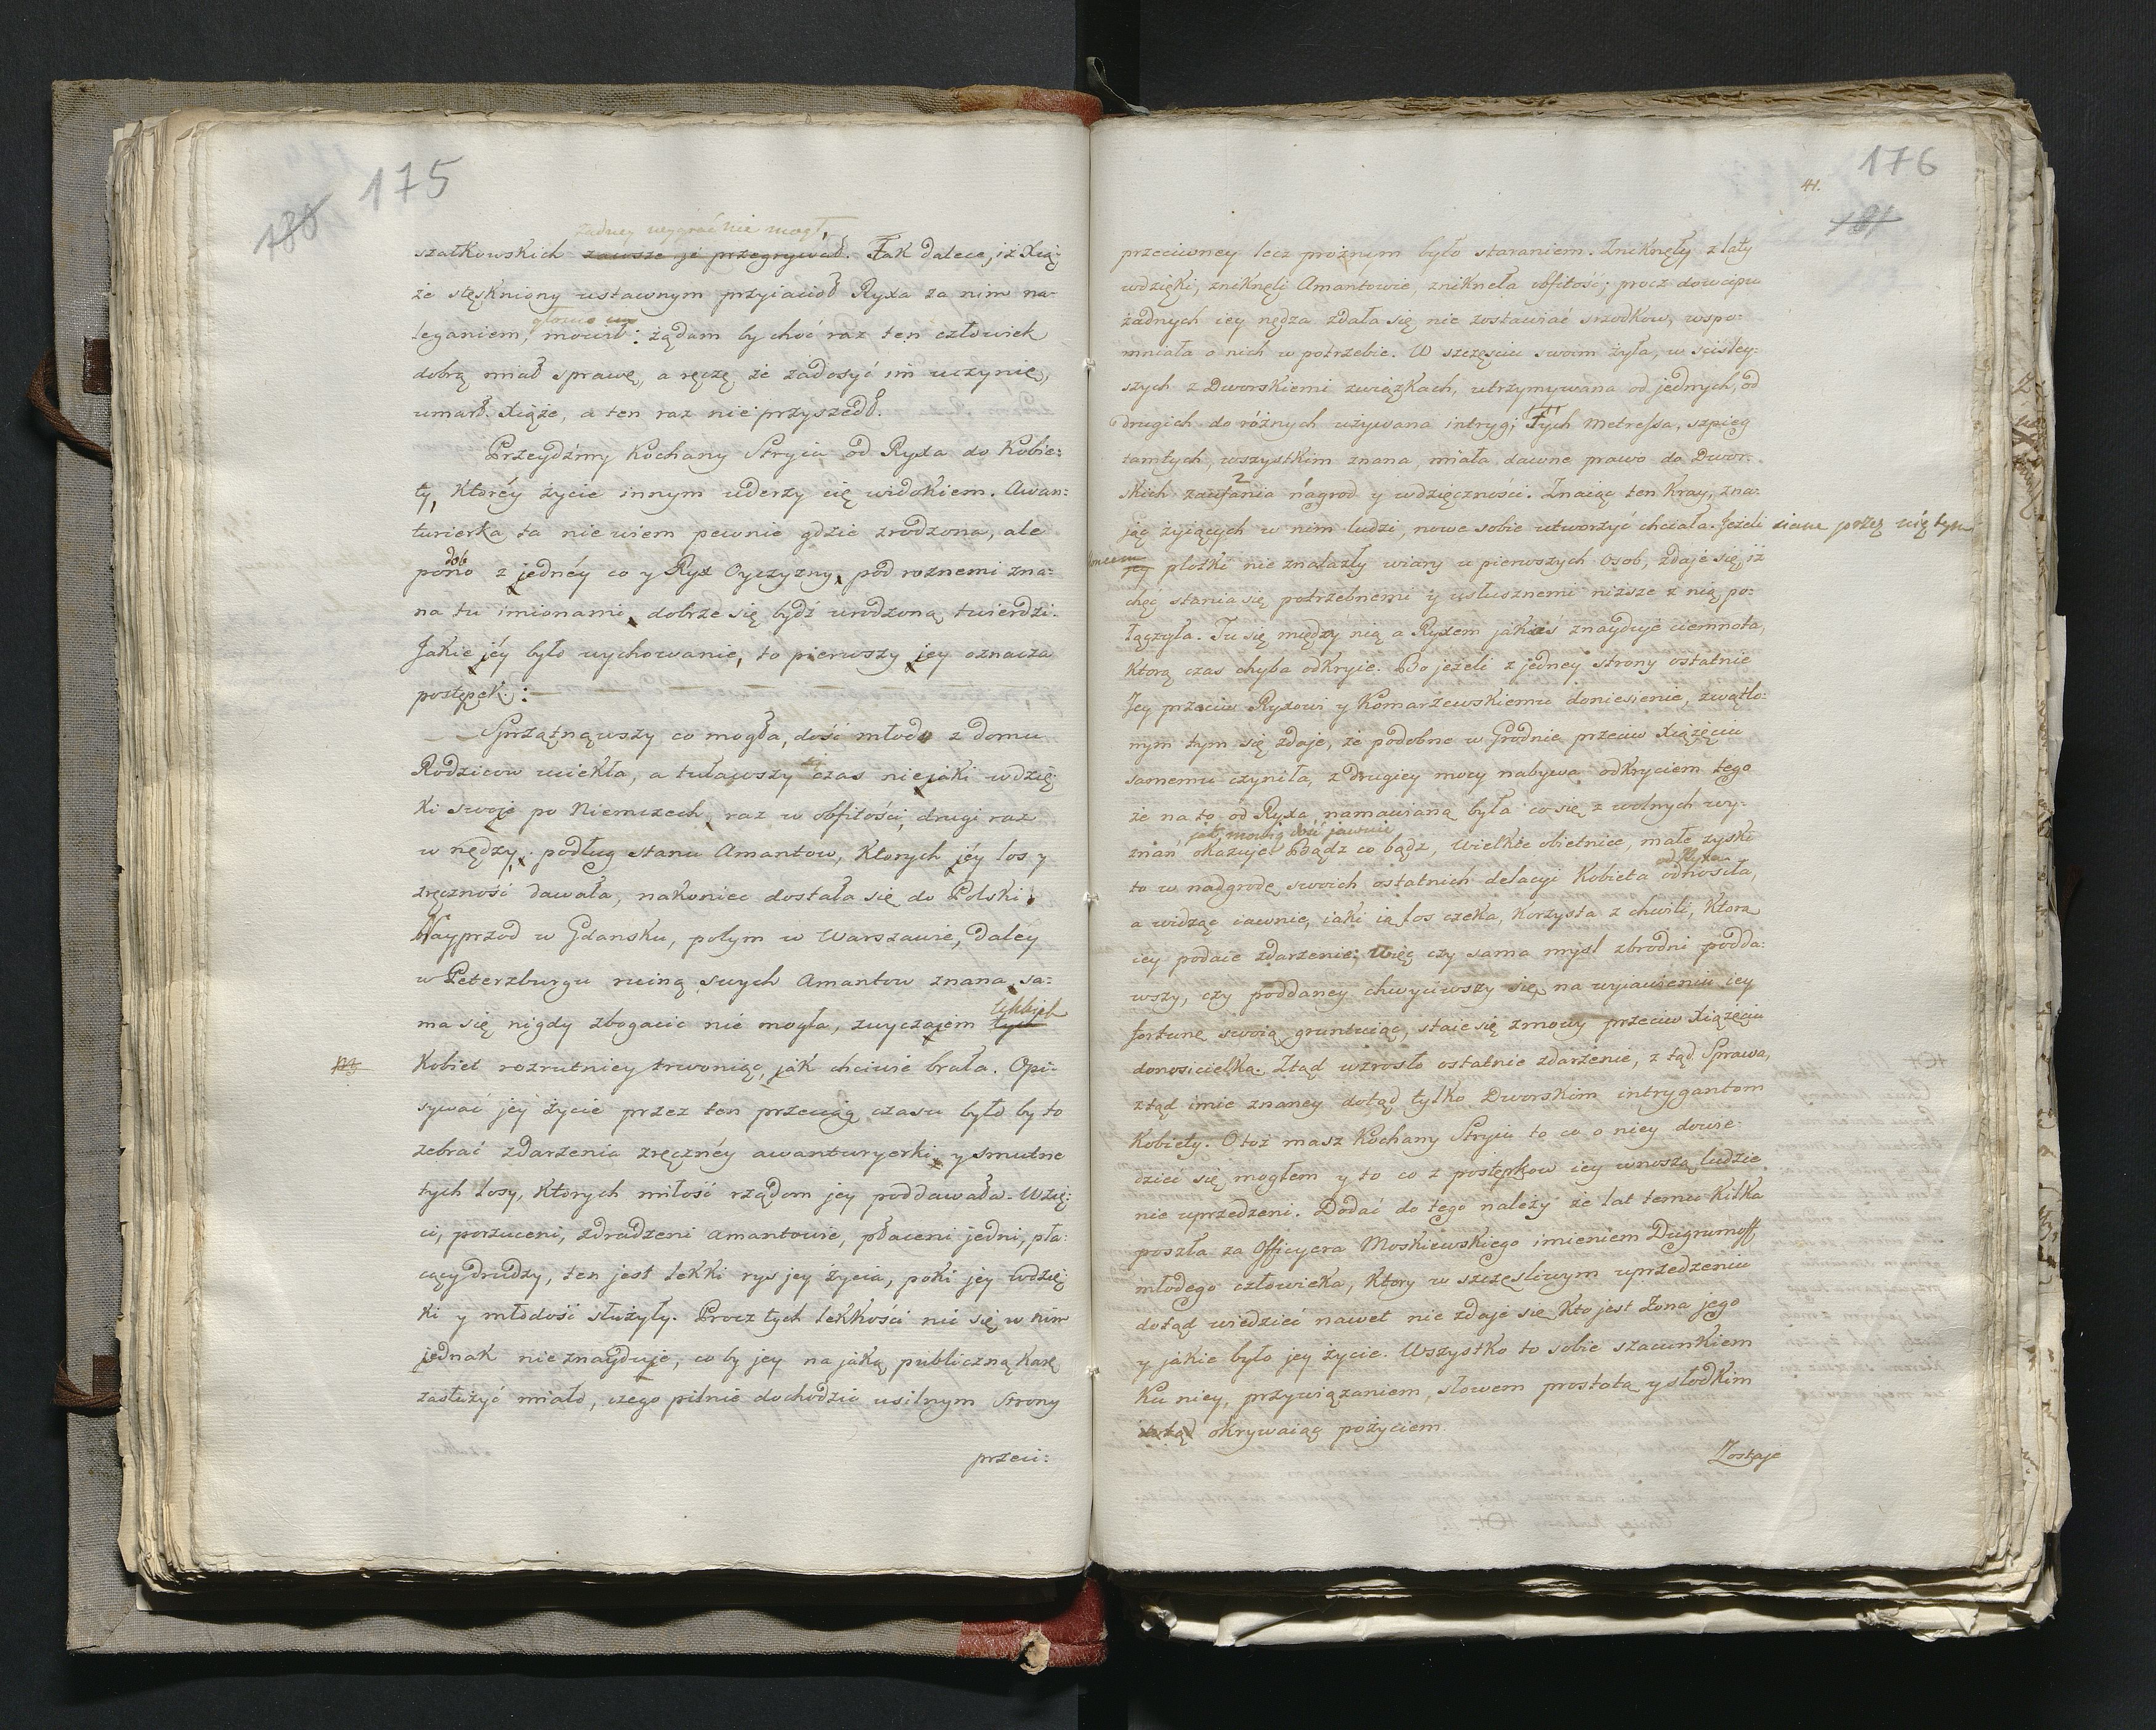 175
180
żadney wygrać nie mogł,
szałkowskich zawsze je przegrywał. Tak dalece, iż Xią-
że stęskniony ustawnym przyiacioł Ryxa za nim na-
leganiem, mowił: żądam by choć raz ten człowiek
dobrą miał sprawę, a ręczę że zadosyć im uczynię,
umarł Xiąże, a ten raz nie przyszedł.
Przeydźmy Kochany Stryiu od Ryxa do Kobie:
ty, ktoréy życie innym uderzy cię widokiem. Awan:
turierka ta nie wiem pewnie gdzie zrodzona, ale
dob
pono z jednéy co y Ryx Oyczyzny, pod roznemi zna:
na tu imionami, dobrze się bydź urodzoną twierdzi.
Jakie jéy było wychowanie, to pierwszy jey oznacza
postępek:
Sprzątnąwszy co mogła, dość młodo z domu
Rodzicow uciekła, a tuławszy czas niejaki wdzię
ki swoje po Niemczech, raz w obfitości, drugi raz
w nędzy, podług stanu Amantow, Ktorych jéy los y
zręczność dawała, nakoniec dostała się do Polski.
Nayprzod w Gdansku, potym w Warszawie, daley
w Peterzburgu ruiną swych Amantow znana, sa:
ma się nigdy zbogacic nie mogła, zwyczajem tych
takich
Kobiet rozrutniey trwoniąc, jak chciwie brała. Opi-
sywać jéy życie przez ten przeciąg czasu było by to
zebrać zdarzenia zręcznéy awanturyerki, y smutne
tych losy, Ktorych miłość rządom jey poddawała. Wzię:
ci, porzuceni, zdradzeni amantowie, płaceni jedni, pła:
cący drudzy, ten jest lekki rys jey życia, poki jey wdzię:
ki y młodość służyły. Procz tych lekkości nic się w nim
jednak nie znayduje, co by jey na jaką publiczną karę
zasłużyć miało, czego pilnie dochodzić usilnym Strony
przeci:
176
41.
181
przeciwney lecz prożnym było staraniem. Zniknęły z laty
wdzięki, zniknęli Amantowie, znikneła obfitość; procz dowcipu
żadnych iey nędza zdała się nie zostawiać srzodkow, wspo:
mniała o nich w potrzebie. W szczęściu swoim żyła, w scisley:
szych z Dworskiemi związkach, utrzymywana od jednych, od
drugich do różnych używana intryg; Tych Metressa, szpieg
tamtych, wszystkim znana, miała dawne prawo do Dwor:
skich zaufania nagrod y wdzięczności. Znaiąc ten Kray, zna:
jąc żyiących w nim ludzi, nowe sobie utworzyć chciała. Jeżeli siane przez nię tym
jey plotki nie znalazły wiary u pierwszych osob, zdaje się, iż
chęć stania się potrzebnemi y usłusznemi niższe z nią po:
łączyła. Tu się między nią a Ryxem jakaś znayduje ciemnota,
Ktorą czas chyba odkryie. Bo jeżeli z jedney strony ostatnie
Jey przeciw Ryxowi y Komarzewskiemu doniesienie, zwątlo:
nym tym się zdaje, że podobne w Grodnie przeciw Xiążęciu
samemu czyniła, z drugiey mocy nabywa odkryciem tego
że na to od Ryxa namawianą była co się z wolnych wy:
znań okazuje. Bądz co bądz, wielkie obietnice, małe zyski
od Ryxa
to w nadgrodę swoich ostatnich delacyi Kobieta odnosiła,
a widząc iawnie, iaki ią los czeka, korzysta z chwili, Ktora
iey podaie zdarzenie; Więc czy sama mysl zbrodni podda:
wszy, czy poddaney chwyciwszy się, na wyiawieniu iey
fortunę swoią gruntuiąc, staie się zmowy przeciw Xiążęciu
donosicielką. Ztąd wzrosło ostatnie zdarzenie, z tąd Sprawa,
ztąd imie znaney dotąd tylko Dworskim intrygantom
Kobiety. Otoż masz Kochany Stryiu to co o niey dowie:
dzieć się mogłem y to co z postępkow iey wnoszą ludzie
nie uprzedzeni. Dodać do tego należy że lat temu kilka
poszła za Officyera Moskiewskiego imieniem Dugrumoff,
młodego człowieka, Ktory w szczęsliwym uprzedzeniu
dotąd wiedzieć nawet nie zdaje się Kto jest Żona jego
y jakie było jey życie. Wszystko to sobie szacunkiem
Ku niey, przywiązaniem, słowem prostotą y słodkim
dotąd okrywaiąc pożyciem.
Zostaje